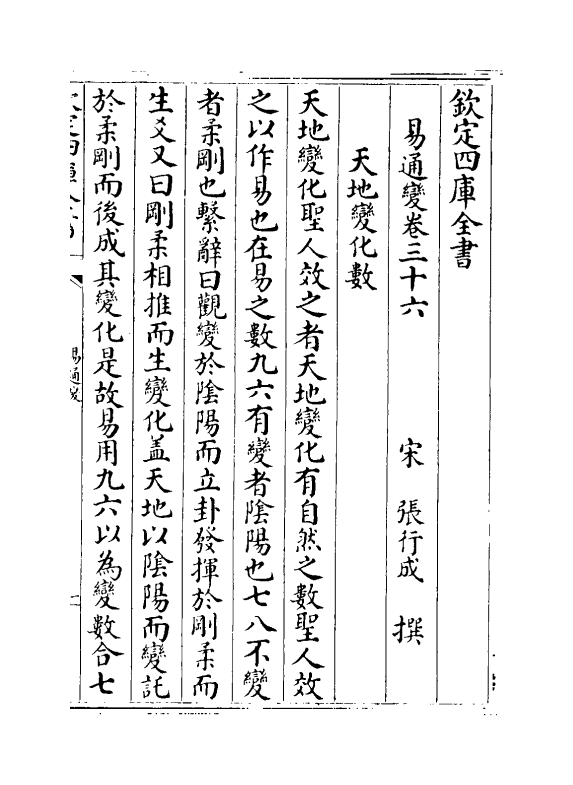 欽定四庫全書
易通變卷三十六
宋 張行成 撰
天地變化數
天地變化聖人效之者天地變化有自然之數聖人效
之以作易也在易之數九六有變者陰陽也七八不變
者柔剛也繫辭曰觀變於陰陽而立卦發揮於剛柔而
生爻又曰剛柔相推而生變化蓋天地以陰陽而變託
於柔剛而後成其變化是故易用九六以為變數合七
易通變